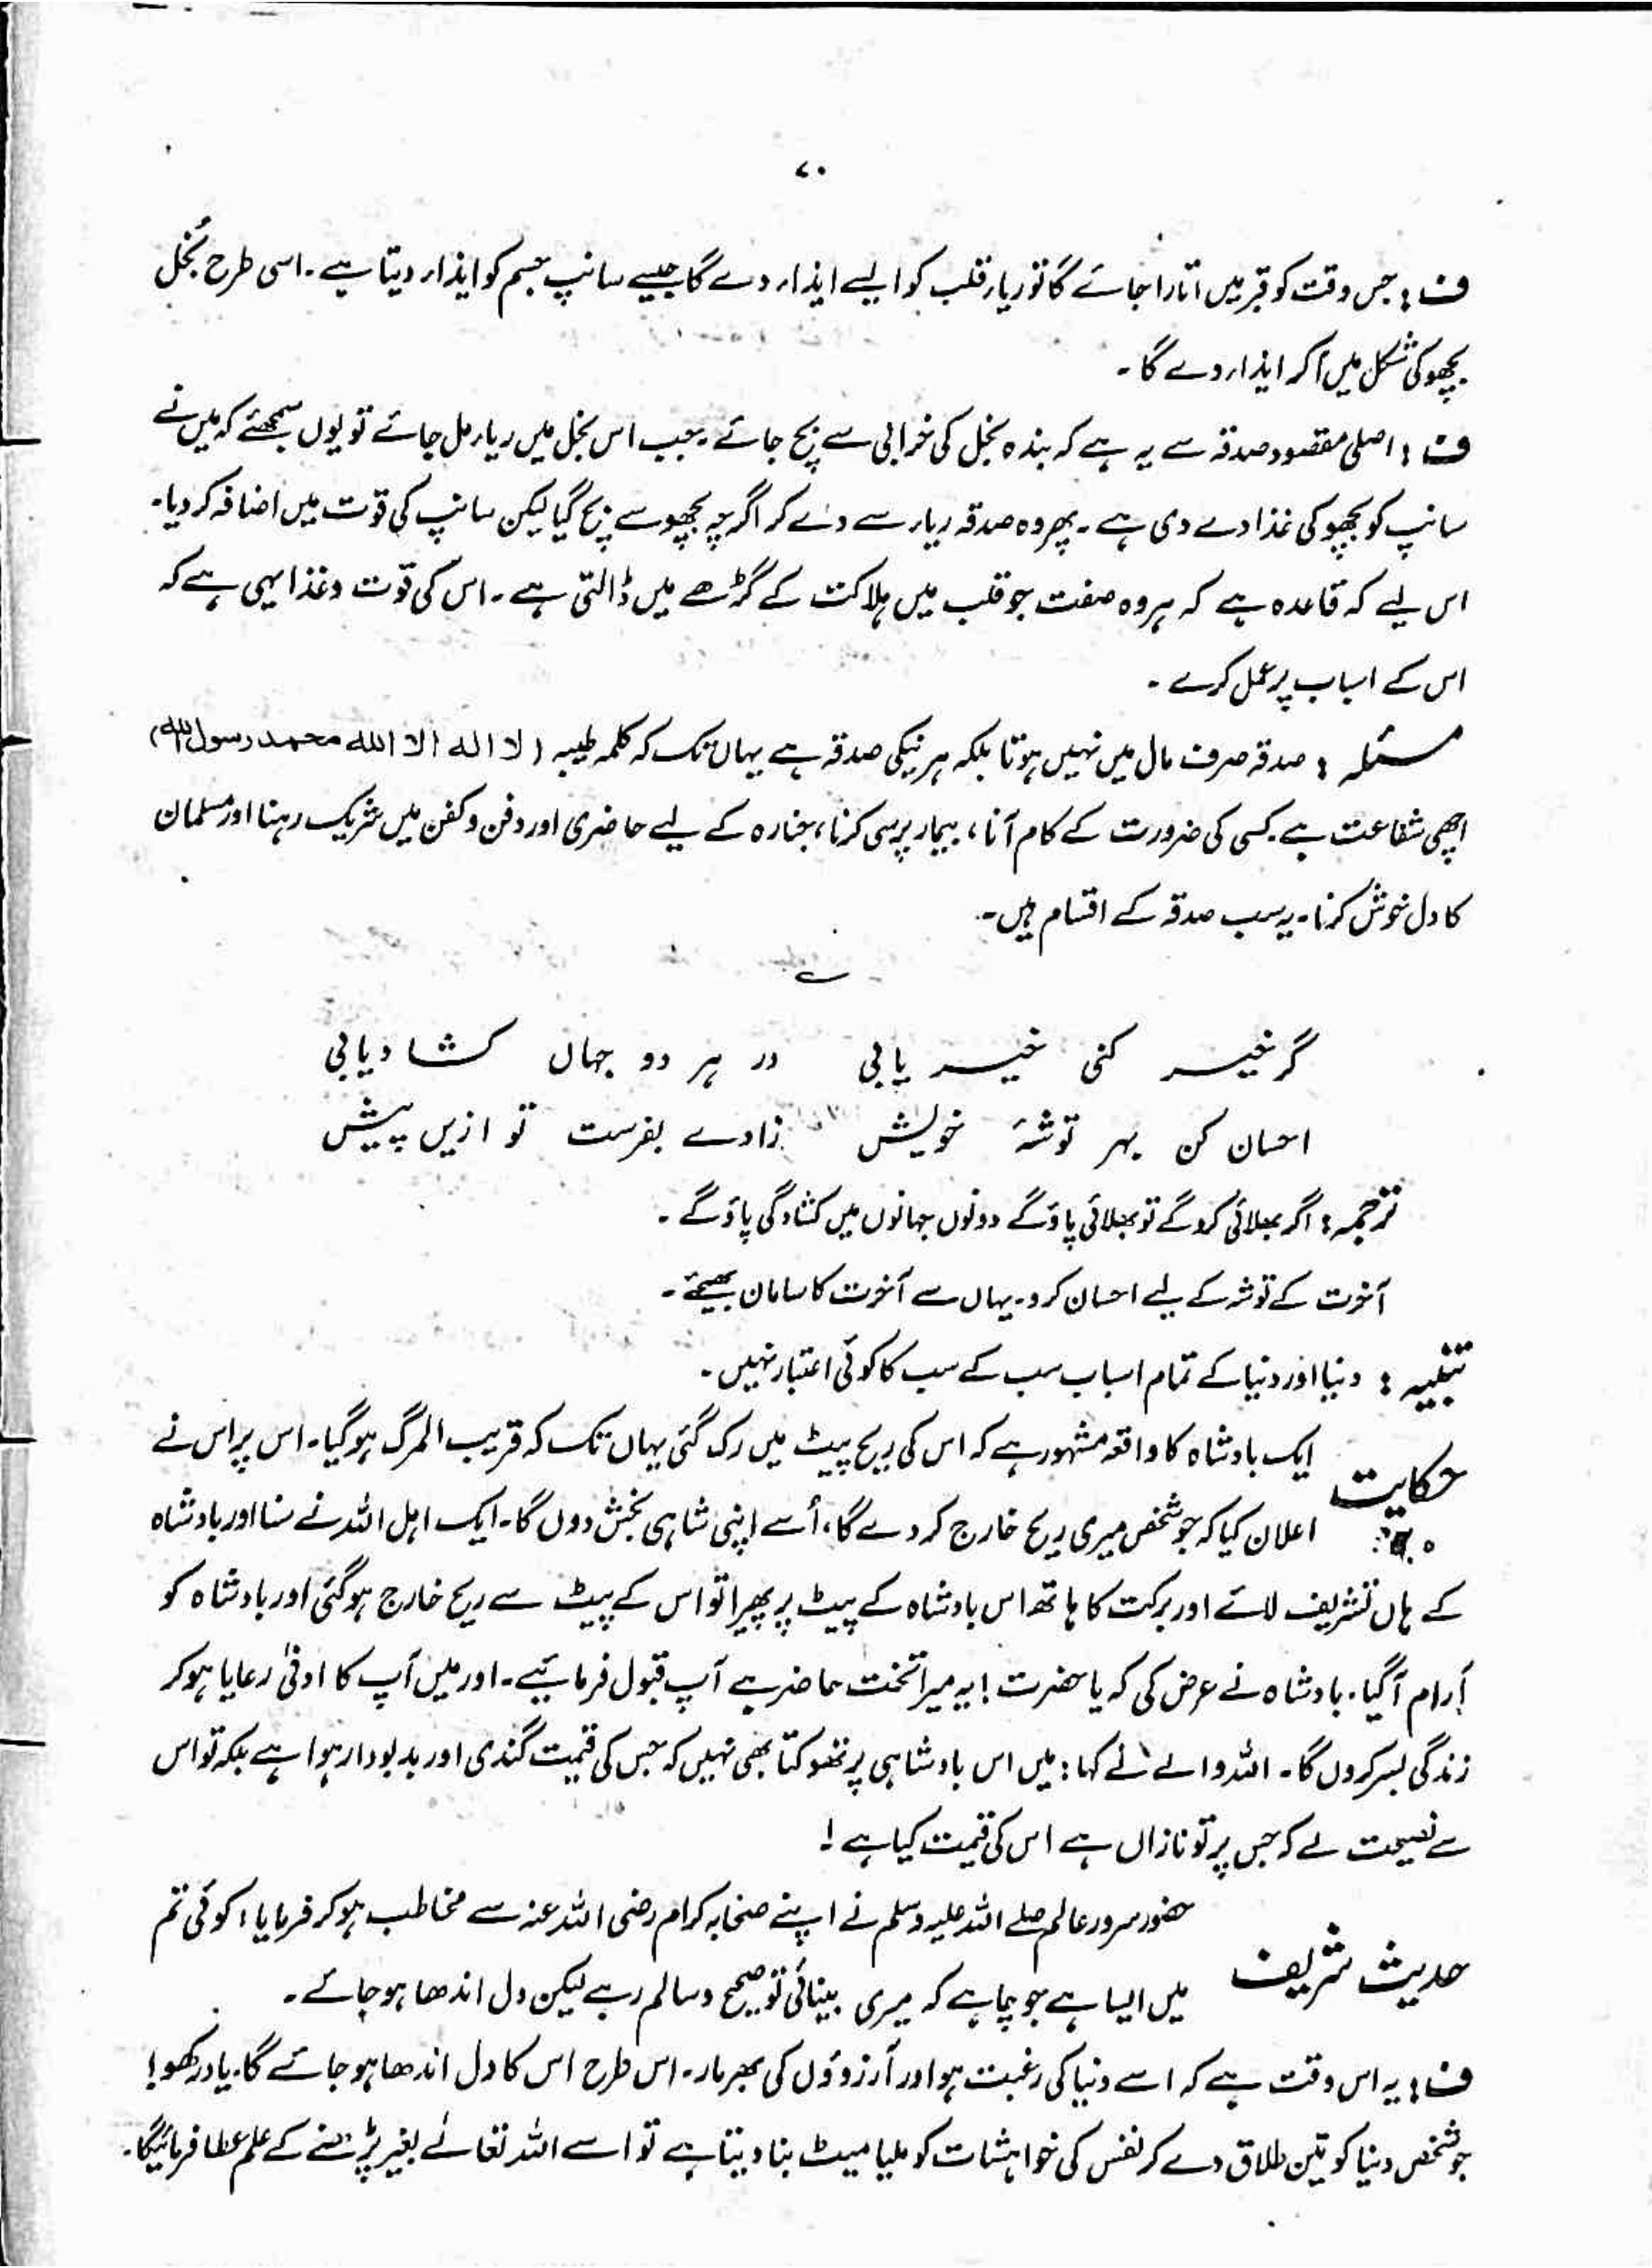 ۷۰
ف : جس وقت کو قبر میں اتارا جائے گا تو ریا ر قلب کو ایسے ایذا ر دے گا جیسے سانپ جسم کو ایذا ر دیتا ہے ۔ اسی طرح بُخل
بچھو کی شکل میں آ کر ایذا ر دے گا ۔
ف : اصلی مقصود صدقہ سے یہ ہے کہ بندہ بخل کی خرابی سے بچ جائے ۔ جب اس بخل میں ریا ر مل جائے تو یوں سمجھئے کہ میں نے
سانپ کو بچھو کی غذا دے دی ہے ۔ پھر وہ صدقہ ریا ر سے دے کر اگرچہ بچھو سے بچ گیا لیکن سانپ کی قوت میں اضافہ کر دیا ۔
اس لیے کہ قاعدہ ہے کہ ہر وہ صفت جو قلب میں ہلاکت کے گڑھے میں ڈالتی ہے ۔ اس کی قوّت و غذا یہی ہے کہ
اس کے اسباب پر عمل کرے ۔
مسئلہ : صدقہ صرف مال میں نہیں ہوتا بلکہ ہر نیکی صدقہ ہے یہاں تک کہ کلمہ طیبہ (لا الہ الا اللہ محمد رسول اللہ)
اچھی شفاعت ہے ۔ کسی کی ضرورت کے کام آنا ، بیمار پرسی کرنا ، جنازہ کے لیے حاضری اور دفن و کفن میں شریک رہنا اور مسلمان
کا دل خوش کرنا ۔ یہ سب صدقہ کے اقسام ہیں ۔
گر خیر کنی خیر یابی در ہر دو جہاں کشاد یابی
احسان کن بہر توشۂ خویش زادے بفرست تو ازیں پیش
ترجمہ : اگر بھلائی کرو گے تو بھلائی پاؤ گے دونوں جہانوں میں کشادگی پاؤ گے ۔
آخرت کے توشہ کے لیے احسان کرو ۔ یہاں سے آخرت کا سامان بھیجئے ۔
تنبیہ : دنیا اور دنیا کے تمام اسباب سب کے سب کا کوئی اعتبار نہیں ۔
حکایت ایک بادشاہ کا واقعہ مشہور ہے کہ اس کی ریح پیٹ میں رک گئی یہاں تک کہ قریب المرگ ہو گیا ۔ اس پر اس نے
اعلان کیا کہ جو شخص میری ریح خارج کر دے گا ، اُسے اپنی شاہی بخش دوں گا ۔ ایک اہل اللہ نے سنا اور بادشاہ
کے ہاں تشریف لائے اور برکت کا ہاتھ اس بادشاہ کے پیٹ پر پھیرا تو اس کے پیٹ سے ریح خارج ہو گئی اور بادشاہ کو
آرام آ گیا ۔ بادشاہ نے عرض کی کہ یا حضرت ! یہ میرا تخت حاضر ہے آپ قبول فرمائیے ۔ اور میں آپ کا ادنیٰ رعایا ہو کر
زندگی بسر کروں گا ۔ اللہ والے نے کہا : میں اس بادشاہی پر تھوکتا بھی نہیں کہ جس کی قیمت گندی اور بدبودار ہوا ہے بلکہ تو اس
سے نصیحت لے کہ جس پر تو نازاں ہے اس کی قیمت کیا ہے !
حدیث شریف حضور سرور عالم صلے اللہ علیہ وسلم نے اپنے صحابہ کرام رضی اللہ عنہ سے مخاطب ہو کر فرمایا : کوئی تم
میں ایسا ہے جو چاہے کہ میری بینائی تو صحیح و سالم رہے لیکن دل اندھا ہو جائے ۔
ف : یہ اس وقت ہے کہ اسے دنیا کی رغبت ہو اور آرزوؤں کی بھرمار ۔ اس طرح اس کا دل اندھا ہو جائے گا ۔ یاد رکھو !
جو شخص دنیا کو تین طلاق دے کر نفس کی خواہشات کو ملیا میٹ بنا دیتا ہے تو اسے اللہ تعالےٰ بغیر پڑھنے کے علم عطا فرمائیگا ۔